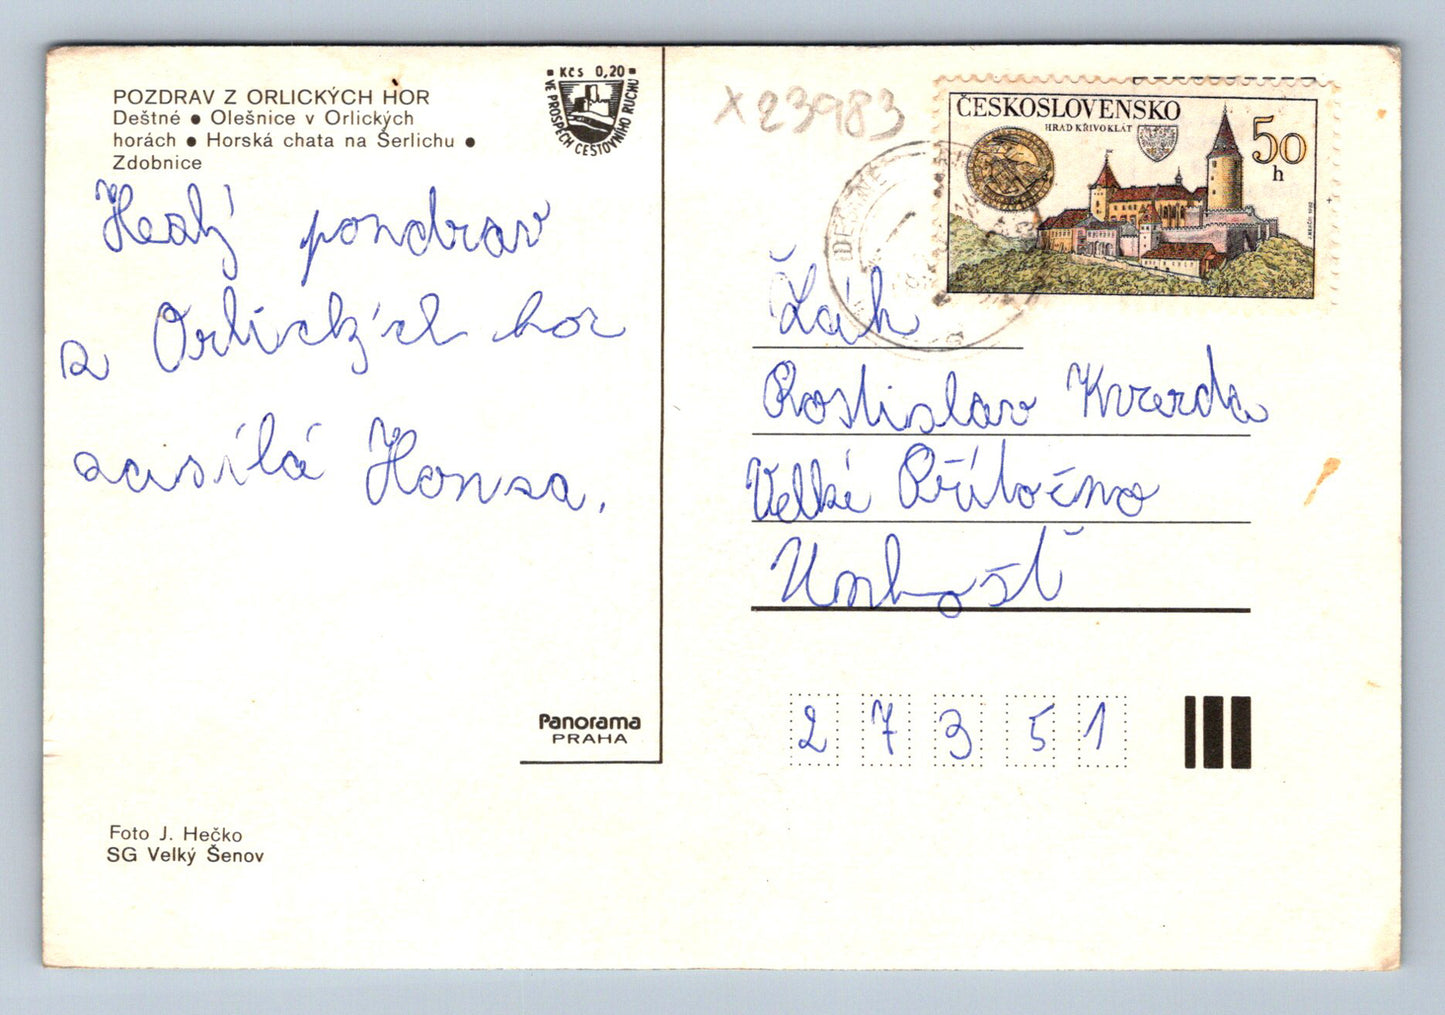 POZDRAV Z ORLICKÝCH HOR
Deštné ● Olešnice v Orlických
horách ● Horská chata na Šerlichu ●
Zdobnice
Kčs 0,20
VE PROSPĚCH CESTOVNÍHO RUCHU
Hezký pozdrav
z Orlických hor
zasílá Honza.
Panorama
PRAHA
Foto J. Hečko
SG Velký Šenov
X 23983
ČESKOSLOVENSKO
HRAD KŘIVOKLÁT
50
h
DEŠTNÉ
Žák
Rostislav Kverda
Velké Přítočno
Unhošť
27351